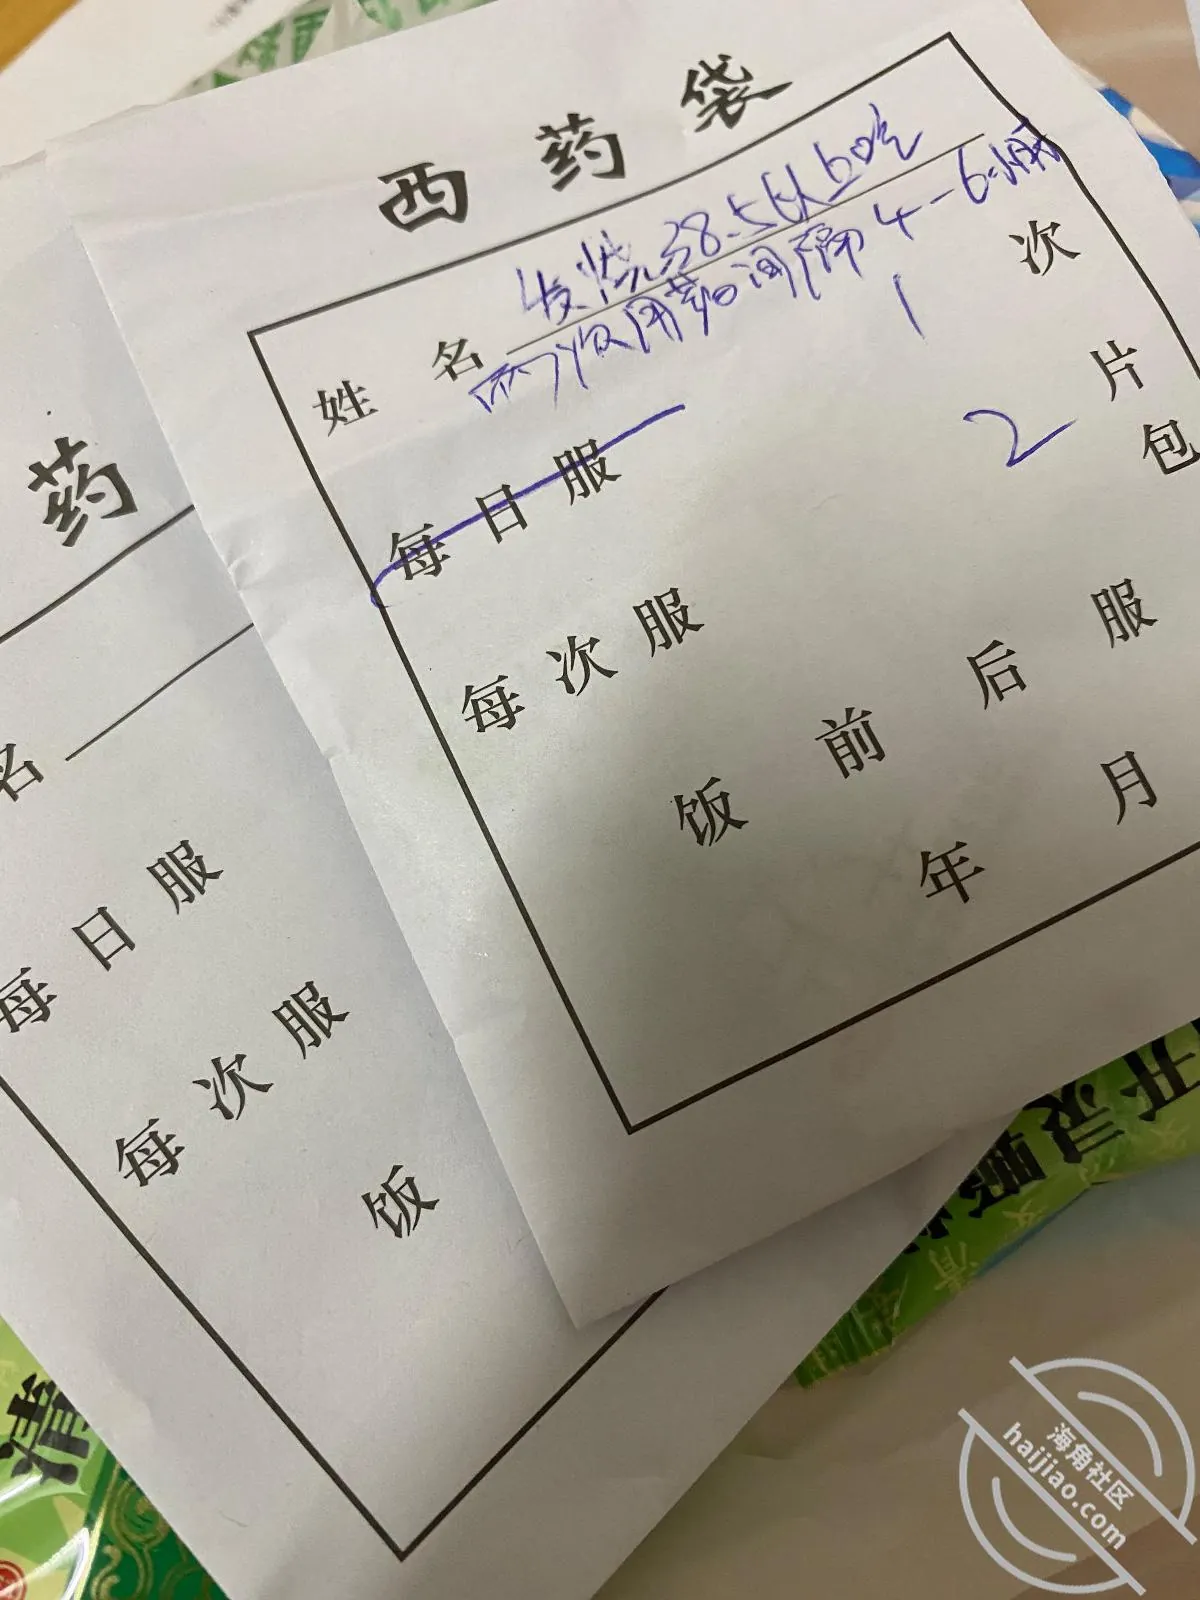 西药袋
发烧38.5以上吃
姓名
两次用药间隔4-6小时
每日服 1 次
每次服 2 片
包
饭前后服
年月
药
名
每日服
每次服
饭
清
开灵颗
清
海角社区
haijiao.com